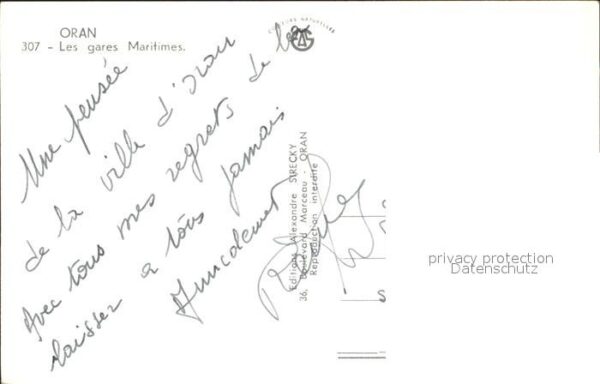 ORAN
307 - Les gares Maritimes.
COULEURS NATURELLES
Une pensée
de la ville d'oran
Avec tous mes regrets de la
laissez a tous jamais
Amicalement
Editions Alexandre SIRECKY
36, Boulevard Marceau - ORAN
Reproduction interdite
privacy protection
Datenschutz